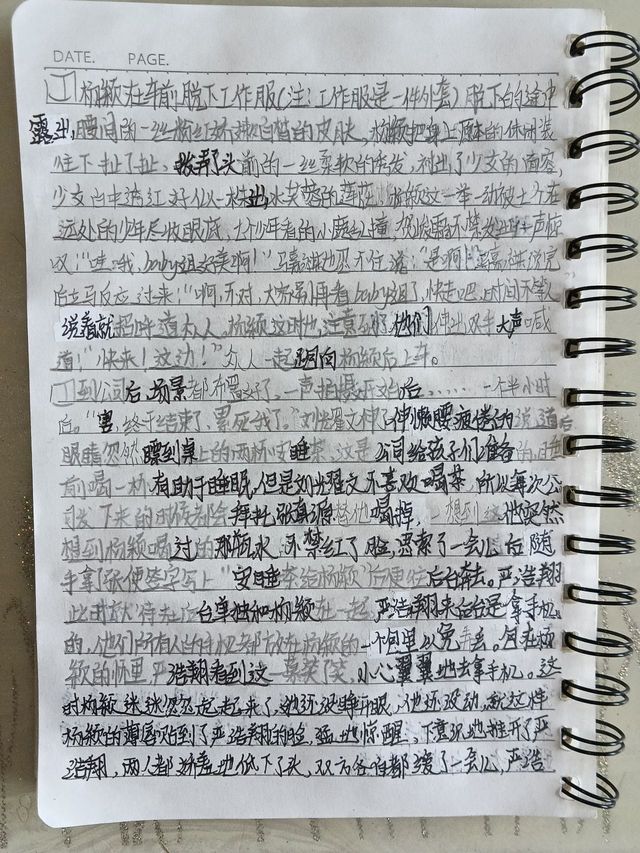 DATE. PAGE.
杨颖在车前脱下工作服(注:工作服是一件外套)脱下的途中
露出腰间的一丝 皮肤,杨颖把身上原本的休闲装
往下扯了扯, 头前的一丝柔软的 发, 出了少女的面容,
少女白中 红好似一 出水芙蓉的莲 ,杨颖这一举一动被七个在
远处的少年尽收眼底,七个少年的小鹿 撞, 不禁发出 一声惊
叹:“哇哦,baby姐好美啊!” 也忍不住说:“是啊!” 说完
后立马反应过来:“啊,不对,大 别再看baby姐了,快走吧,时间不等人”
说着就招呼 众人,杨颖这时也注意到了他们伸出双手大声喊
道:“快来!这边!”众人一起 向杨颖后上车。
到公司后,场景都布置好了,一声拍摄开始后,…… 一个半小时
后。“害,终于结束了,累死我了。”刘耀文伸了伸懒腰疲倦的说道后
眼睛忽然瞟到桌上的两杯 睡茶,这是公司给孩子们准备的,睡
前喝一杯有助于睡眠,但是刘耀文不喜欢喝茶,所以每次公
司发下来的时候都会拜托张真源替他喝掉, 想到这他突然
想到杨颖喝过的那瓶水,不禁红了脸,思索了一会儿后随
手拿了张便签字写上“安睡茶给杨颖”后便往后台奔去。严浩翔
此时 后台单独和杨颖在一起,严浩翔来后台是拿手机
的,他们所有人的手机都放在杨颖的一个 包里以免 丢。包在杨
颖的怀里,严浩翔看到这一幕笑了笑,小心翼翼地去拿手机。这
时杨颖迷迷忽忽起 来了,她还没睁开眼,他还没动,就这样
杨颖的薄唇贴到了严浩翔的脸,猛地惊醒,下意识地推开了严
浩翔,两人都娇羞地低下了头,双方各自都缓了一会儿,严浩